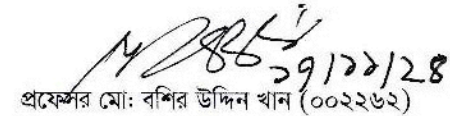 ২৭/১১/২৪
প্রফেসর মো: বশির উদ্দিন খান (০০২২৬২)